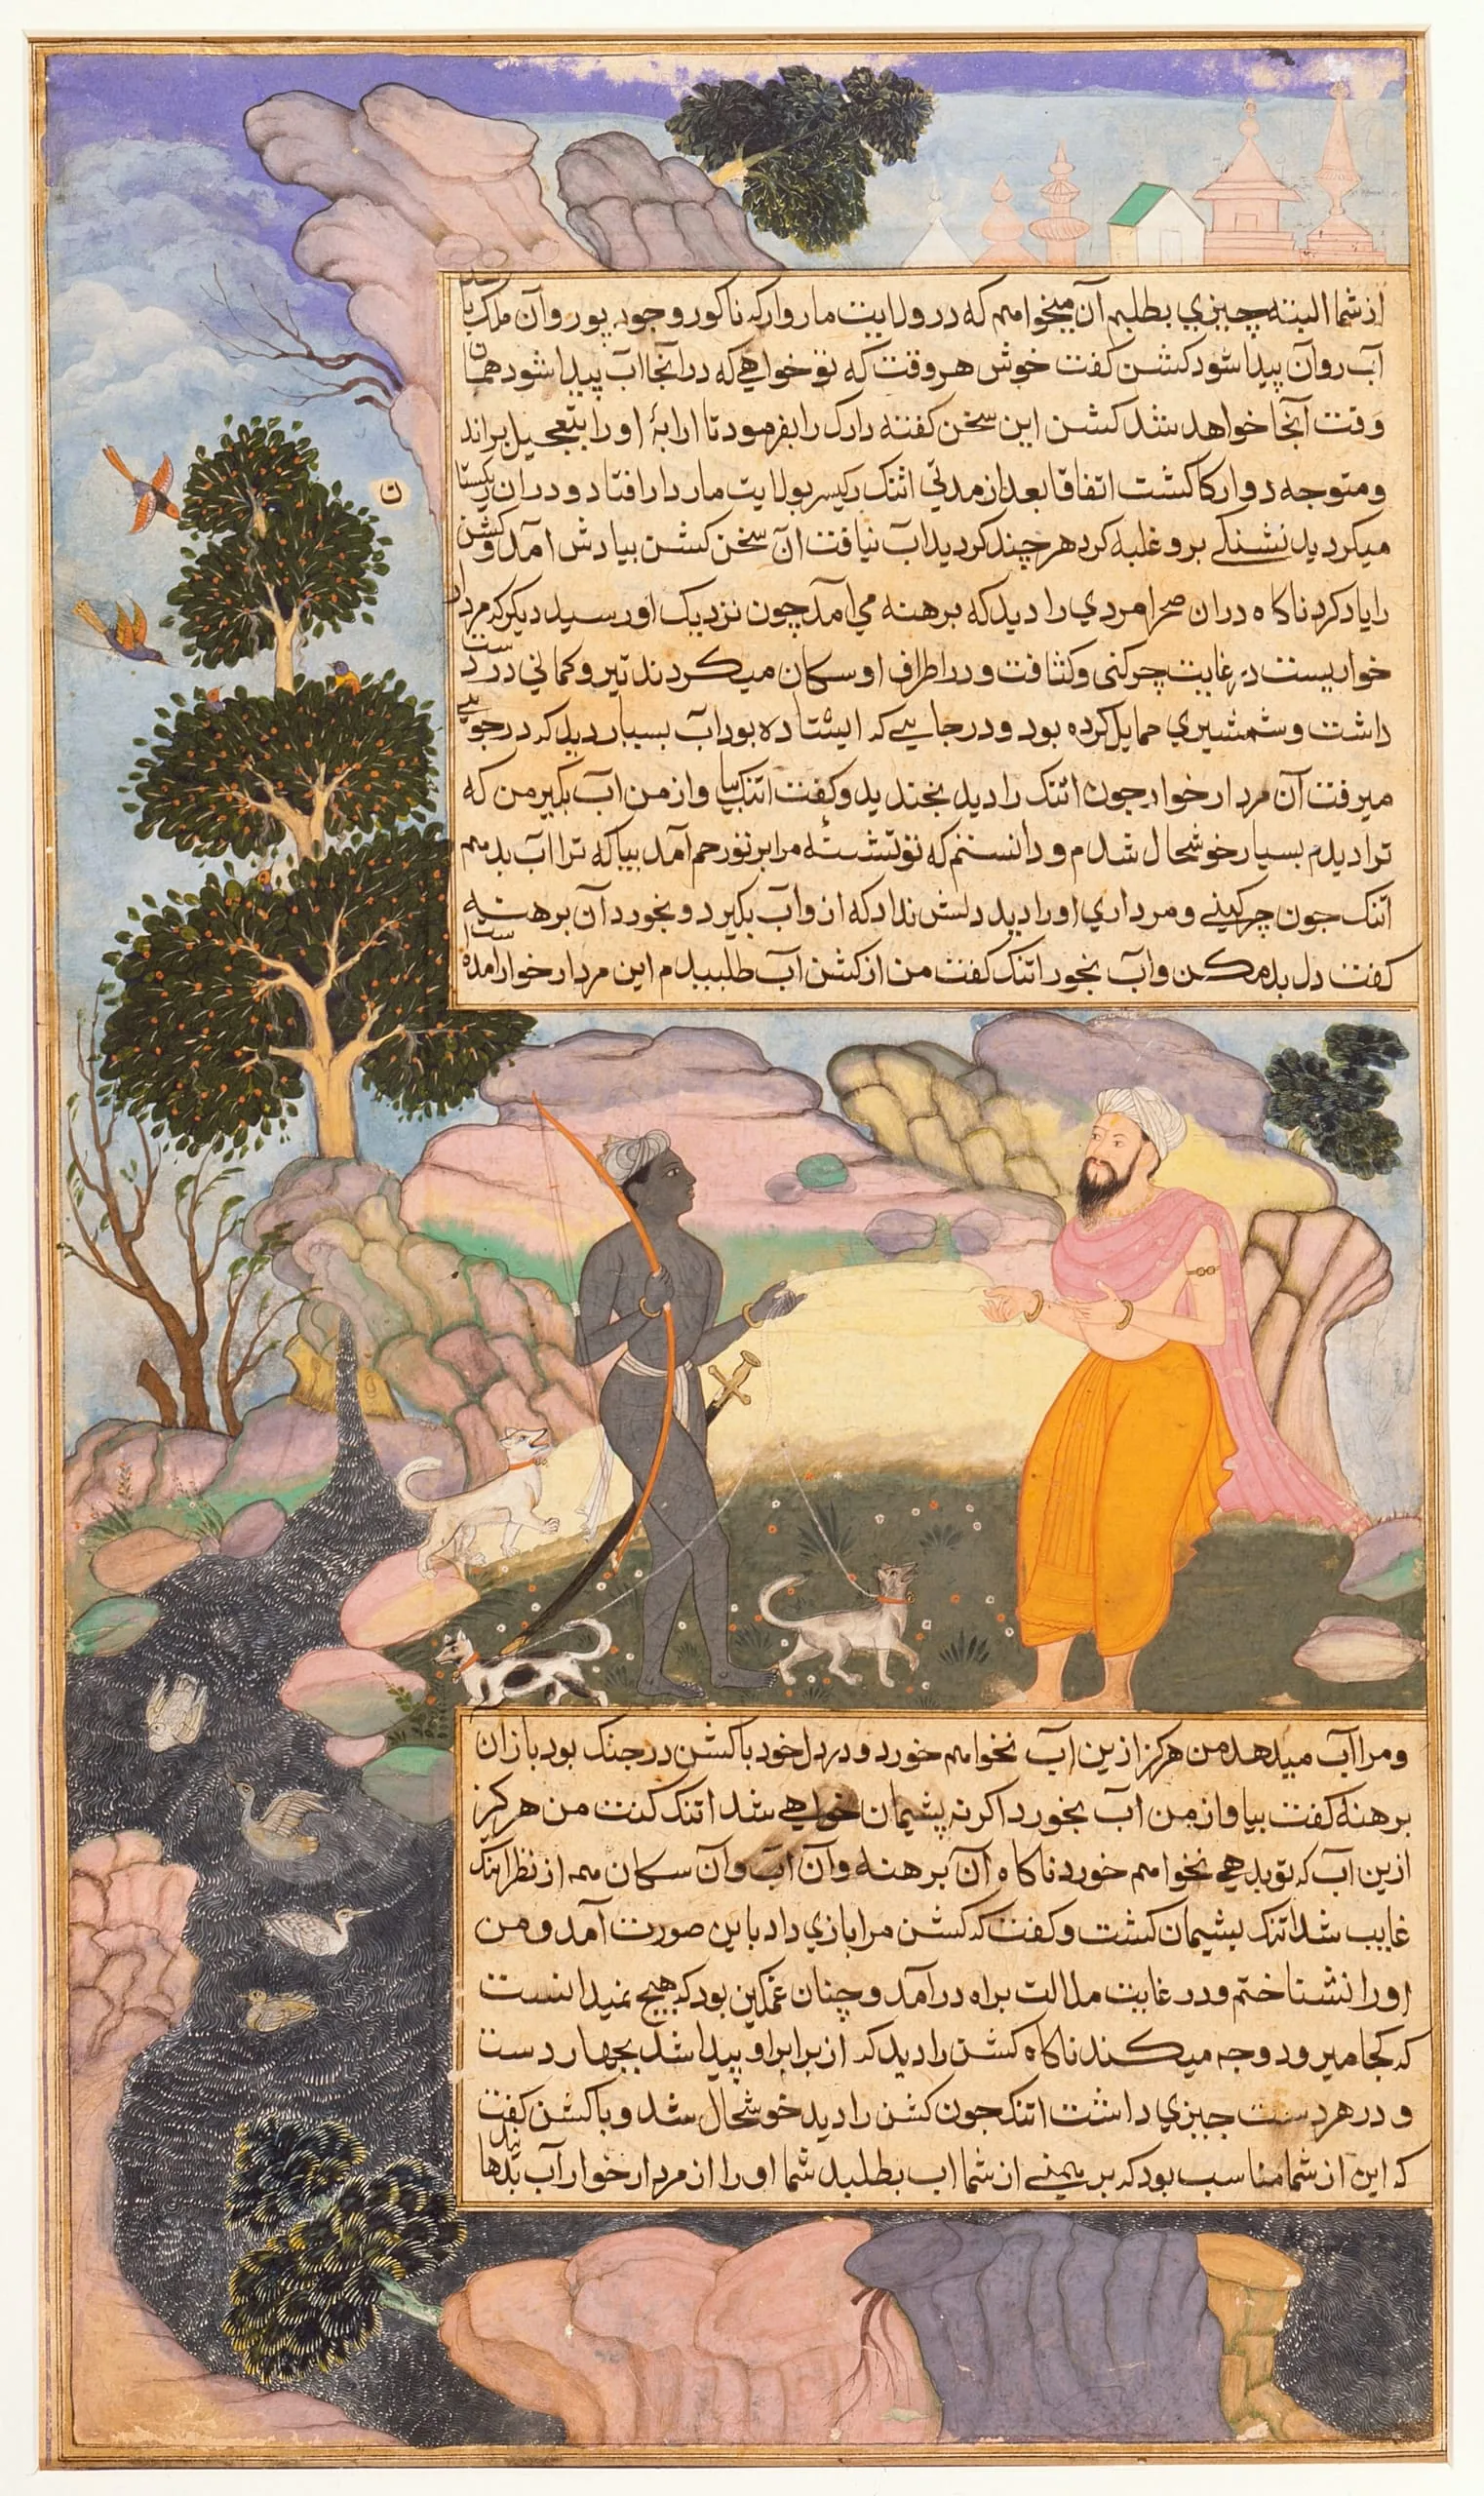 ازشما البته چیزي بطلبم آن میخواهم که در ولایت ماروار که ناکور و جود پور و آن ملک
آب روان پیدا شود کشن کفت خوش هر وقت که تو خواهي که در انجا اب پیدا شود همان
وقت آنجا خواهد شد کشن این سخن کفته دارک را بفرمود تا ارابۀ او را بتعجیل براند
و متوجه دوارکا کشت اتفاقا بعد از مدتي اتنک ریکیسر بولایت ماردار افتاد و دران ریکستان
میکردید تشنکي برو غلبه کرد هر چند کردید اب نیافت آن سخن کشن بیادش امد و کشن
را یاد کرد ناکاه دران صحرا مردي را دید که برهنه مي آمد چون نزدیک او رسید دیکر که مردار
خواریست در غایت چرکنی و کثافت و در اطراف او سکان میکردند تیر و کماني در دست
داشت و شمشیري حمایل کرده بود و در جایي که ایستاده بود اب بسیار دید که در جویي
میرفت آن مردار خوار چون اتنک را دید بخندید و کفت اتنک بیا و از من اب بکیر من که
ترا دیدم بسیار خوشحال شدم و دانستم که تو تشنۀ مرا بر تو رحم آمد بیا که ترا اب بدهم
اتنک چون چرکیني و مرداري او را دید دلش نداد که از و اب بکیرد و بخورد آن برهنه
کفت دل بد مکن و آب بخور اتنک کفت من از کشن اب طلبیدم این مردار خوار امده است
و مرا اب میدهد من هرکز ازین اب نخواهم خورد و در دل خود با کشن در جنک بود باز ان
برهنه کفت بیا و از من اب بخور و اکر نه پشیمان خواهي شد اتنک کفت من هرکز
ازین اب که تو بدهي نخواهم خورد ناکاه آن برهنه و آن اب و آن سکان همه از نظر اتنک
غایب شد اتنک پشیمان کشت و کفت که کشن مرا بازي داد باین صورت آمد و من
او را نشناختم و در غایت ملالت براه در آمد و چنان غمکین بود که هیچ نمیدانست
که کجا میرود و چه میکند ناکاه کشن را دید که از برابر او پیدا شد بچهار دست
و در هر دست چیزي داشت اتنک چون کشن را دید خوشحال شد و با کشن کفت
که این از شما مناسب بود که برهمني از شما اب بطلبد شما او را از مردار خوار آب بدهانید